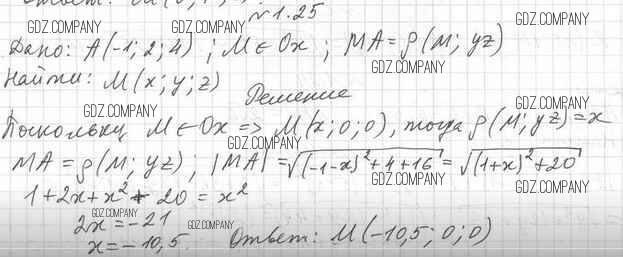 Ответ: M(
№1.25
GDZ.COMPANY GDZ.COMPANY GDZ.COMPANY
Дано: A(-1; 2; 4) ; M ∈ Ox ; MA = ρ(M; yz)
GDZ.COMPANY
Найти: M(x; y; z)
Решение
GDZ.COMPANY GDZ.COMPANY
Поскольку M ∈ Ox => M(x; 0; 0), тогда ρ(M; yz) = x
GDZ.COMPANY
MA = ρ(M; yz) ; |MA| = √((-1-x)² + 4 + 16) = √((1+x)² + 20)
GDZ.COMPANY GDZ.COMPANY
1 + 2x + x² + 20 = x²
GDZ.COMPANY GDZ.COMPANY
2x = -21
x = -10,5. Ответ: M(-10,5; 0; 0)